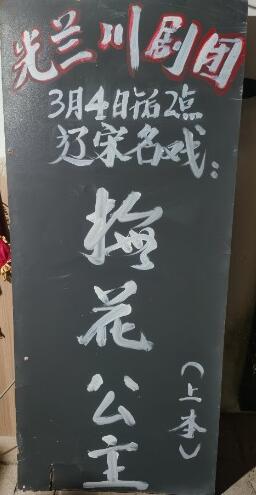 光兰川剧团
3月4日下午2点
辽宋名戏：
梅花公主
（上本）